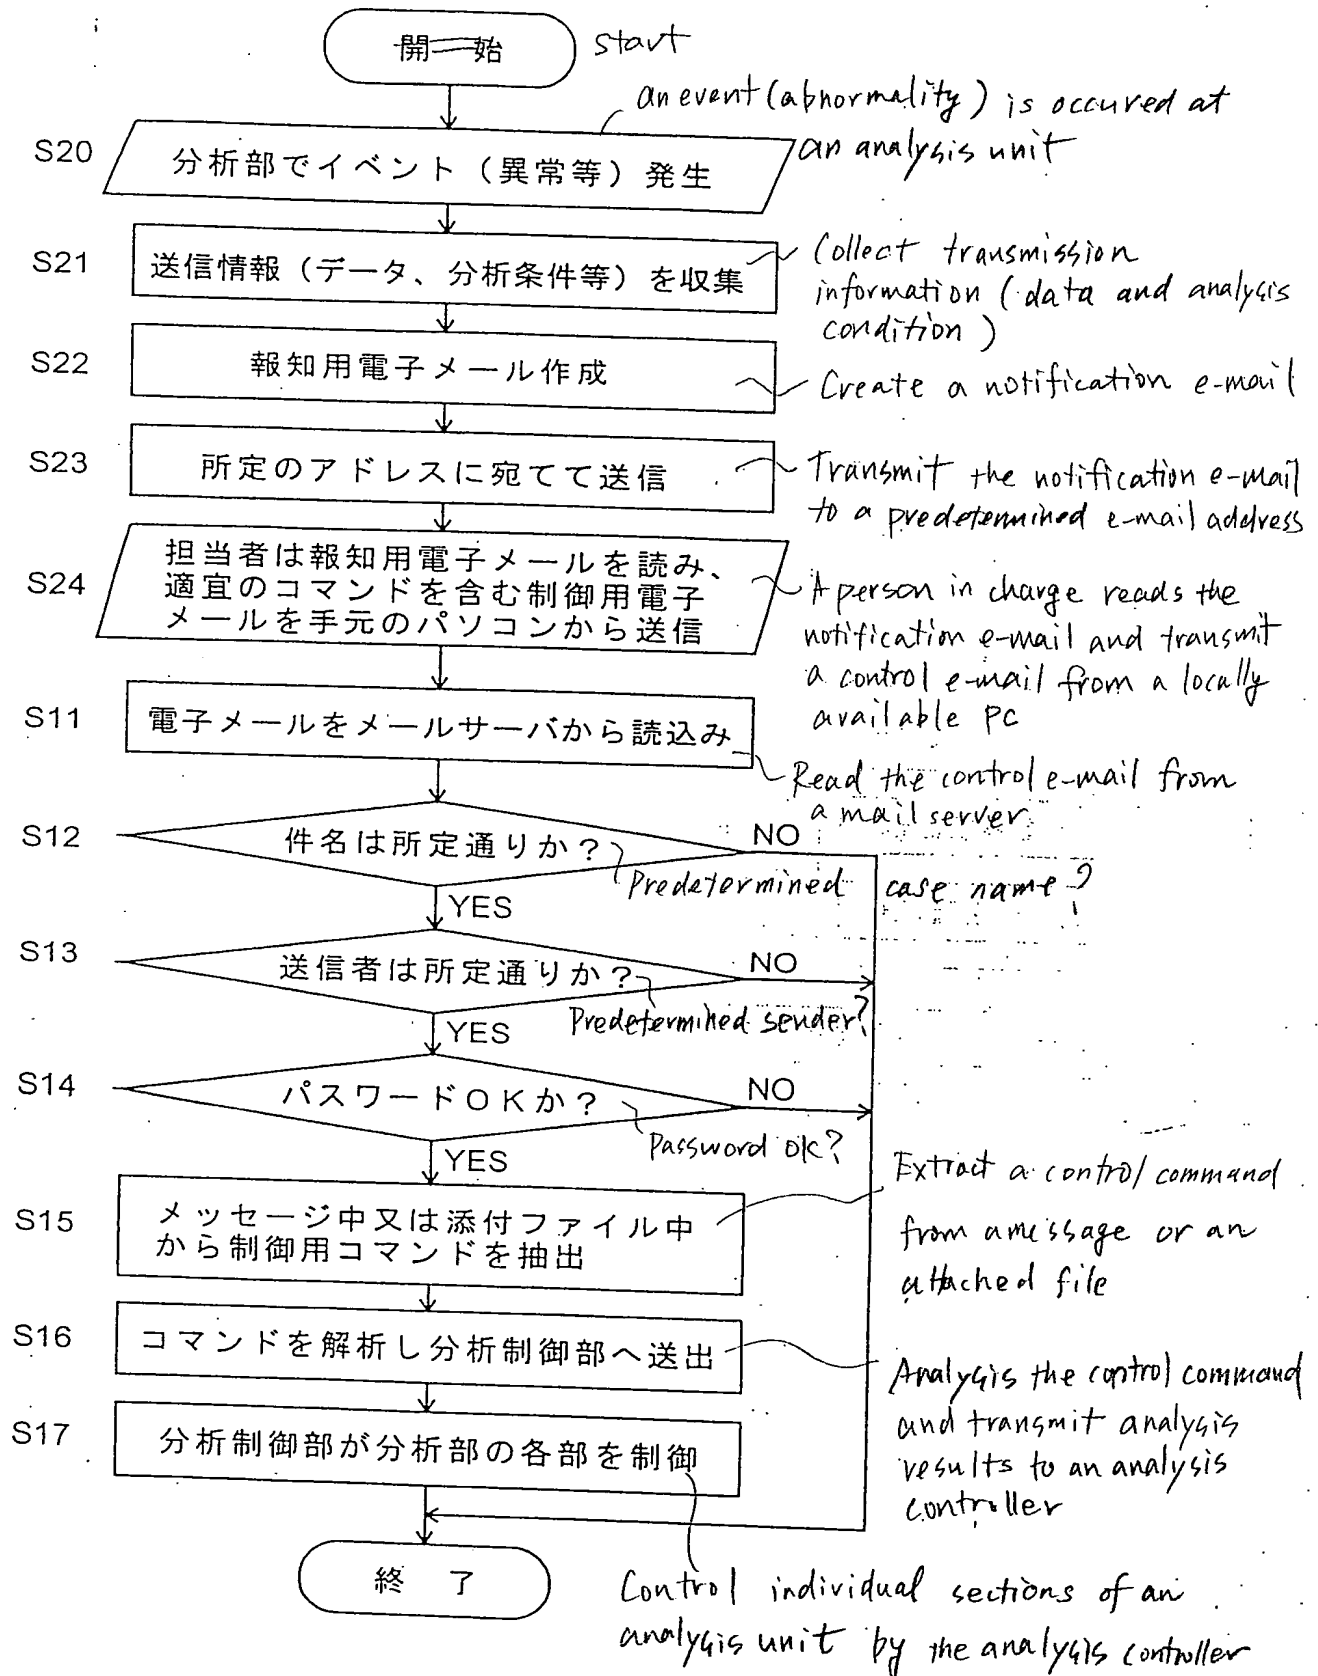 開始
start
an event (abnormality) is occured at
an analysis unit
S20
分析部でイベント（異常等）発生
S21
送信情報（データ、分析条件等）を収集
Collect transmission
information (data and analysis
condition)
S22
報知用電子メール作成
Create a notification e-mail
S23
所定のアドレスに宛てて送信
Transmit the notification e-mail
to a predetermined e-mail address
S24
担当者は報知用電子メールを読み、
適宜のコマンドを含む制御用電子
メールを手元のパソコンから送信
A person in charge reads the
notification e-mail and transmit
a control e-mail from a locally
available PC
S11
電子メールをメールサーバから読込み
Read the control e-mail from
a mail server
S12
件名は所定通りか？
NO
Predetermined case name?
YES
S13
送信者は所定通りか？
NO
Predetermined sender?
YES
S14
パスワードOKか？
NO
Password ok?
YES
S15
メッセージ中又は添付ファイル中
から制御用コマンドを抽出
Extract a control command
from a message or an
attached file
S16
コマンドを解析し分析制御部へ送出
Analysis the control command
and transmit analysis
results to an analysis
controller
S17
分析制御部が分析部の各部を制御
終了
Control individual sections of an
analysis unit by the analysis controller